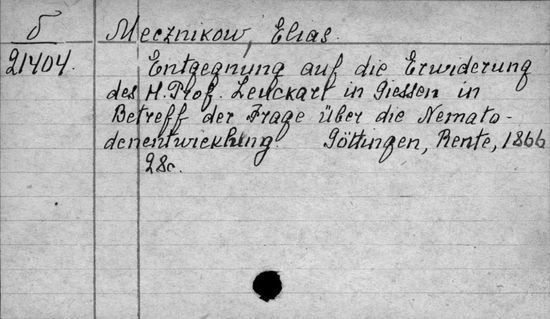 б Mecznikow, Elias.
21404. Entgegnung auf die Erwiderung
des H. Prof. Leuckart in Giessen in
Betreff der Frage über die Nemato-
denentwicklung Göttingen, Rente, 1866
28c.